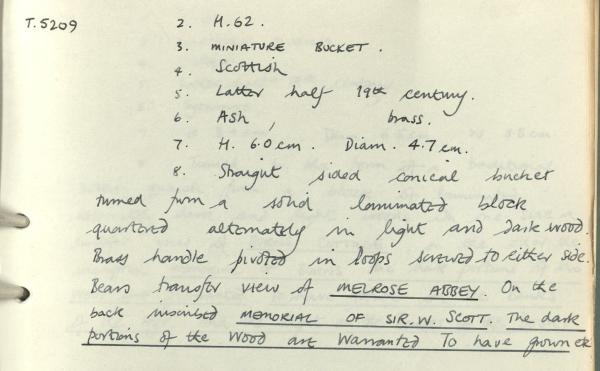 T.5209 2. H.62.
3. MINIATURE BUCKET.
4. Scottish
5. Latter half 19th century.
6. Ash, brass.
7. H. 6.0 cm. Diam. 4.7 cm.
8. Straight sided conical bucket
turned from a solid laminated block
quartered alternately in light and dark wood.
Brass handle pivoted in loops screwed to either side.
Bears transfer view of MELROSE ABBEY. On the
back inscribed MEMORIAL OF SIR. W. SCOTT. The dark
portions of the Wood are Warranted To have grown